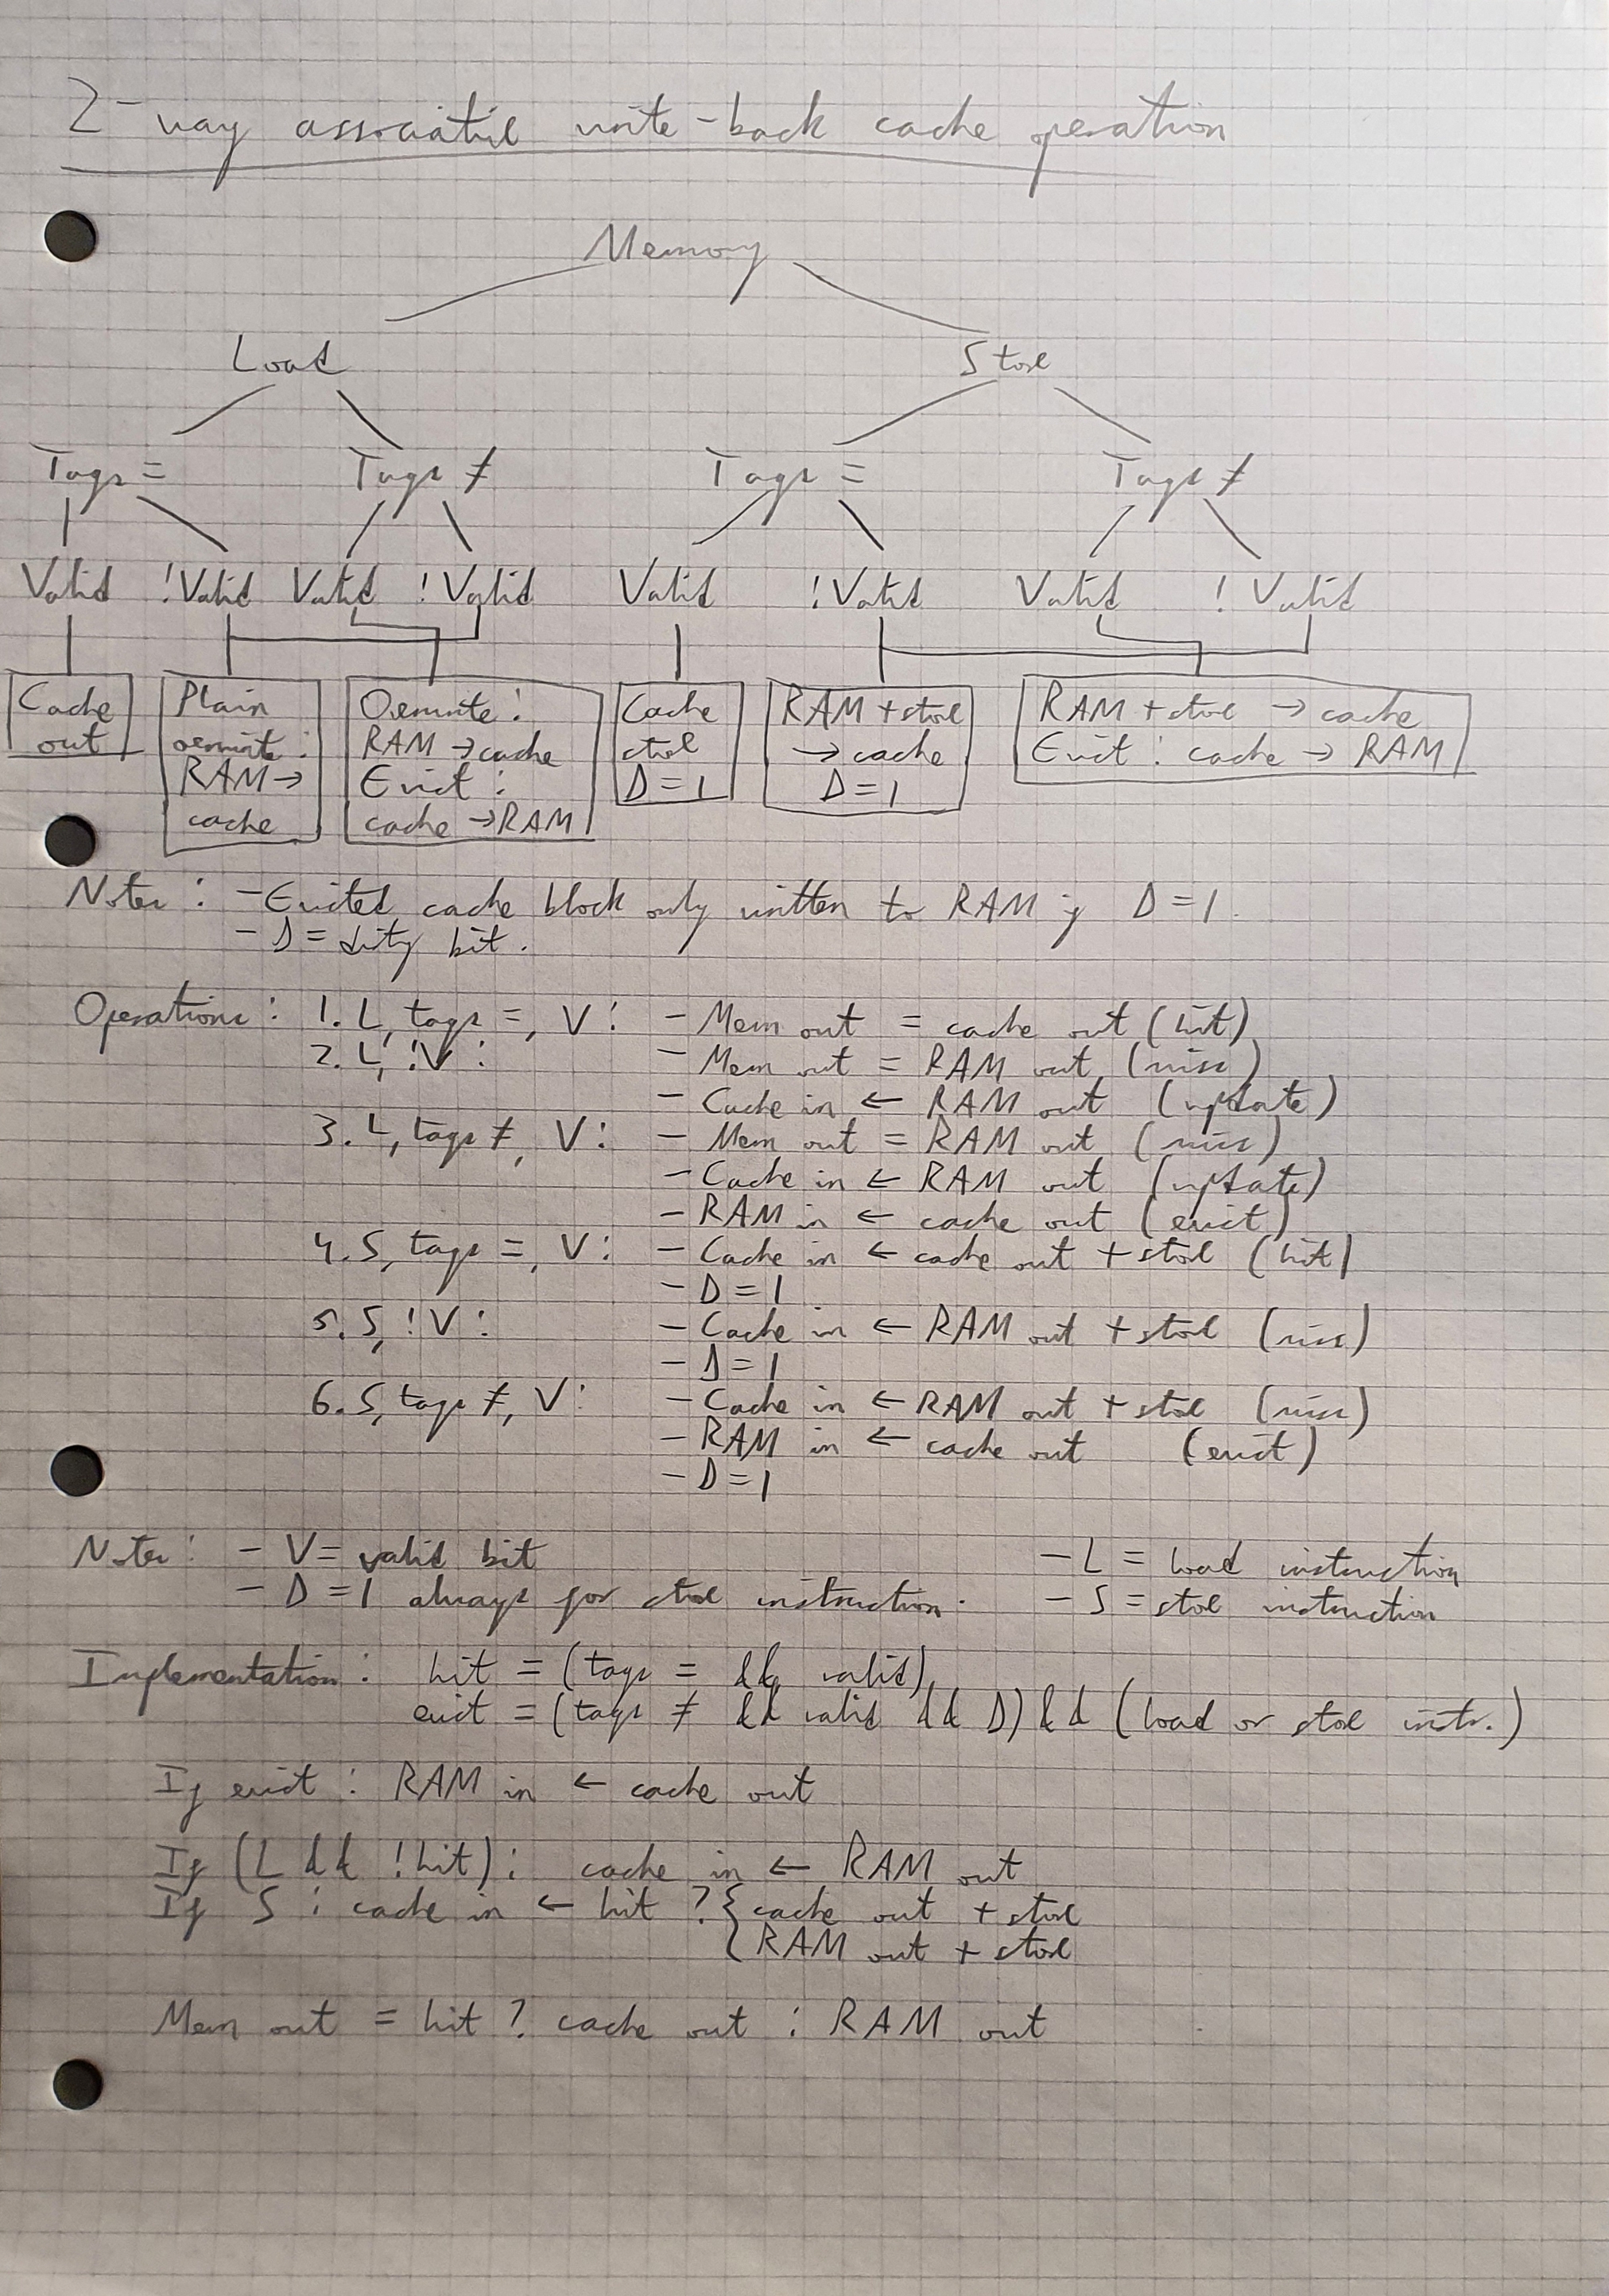 2-way associative write-back cache operation
Memory
Load Store
Tags = Tags ≠ Tags = Tags ≠
Valid !Valid Valid !Valid Valid !Valid Valid !Valid
Cache
out
Plain
overwrite:
RAM →
cache
Overwrite:
RAM → cache
Evict:
cache → RAM
Cache
store
D=1
RAM + store
→ cache
D=1
RAM + store → cache
Evict: cache → RAM
Notes: - Evicted cache block only written to RAM if D=1.
- D = dirty bit.
Operations: 1. L, tags =, V: - Mem out = cache out (hit)
2. L, !V: - Mem out = RAM out (miss)
- Cache in ← RAM out (update)
3. L, tags ≠, V: - Mem out = RAM out (miss)
- Cache in ← RAM out (update)
- RAM in ← cache out (evict)
4. S, tags =, V: - Cache in ← cache out + store (hit)
- D=1
5. S, !V: - Cache in ← RAM out + store (miss)
- D=1
6. S, tags ≠, V: - Cache in ← RAM out + store (miss)
- RAM in ← cache out (evict)
- D=1
Notes: - V = valid bit - L = load instruction
- D=1 always for store instruction. - S = store instruction
Implementation: hit = (tags = && valid)
evict = (tags ≠ && valid && D) && (load or store instr.)
If evict: RAM in ← cache out
If (L && !hit): cache in ← RAM out
If S: cache in ← hit ? { cache out + store
{ RAM out + store
Mem out = hit ? cache out : RAM out